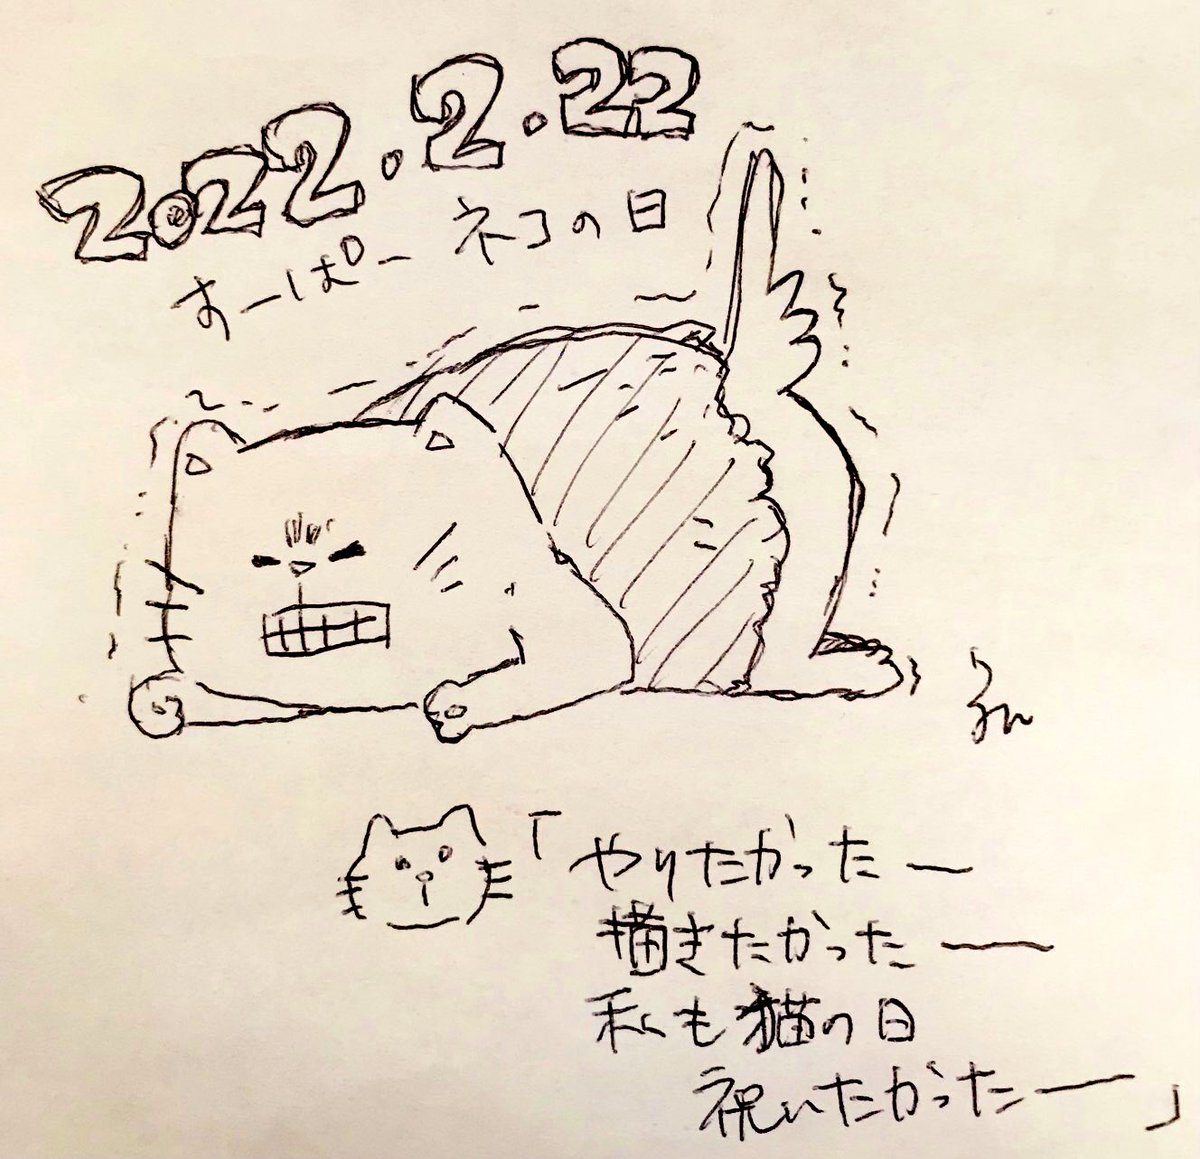 2022.2.22
すーぱーネコの日
「やりたかったー
描きたかったー
私も猫の日
祝いたかったー」